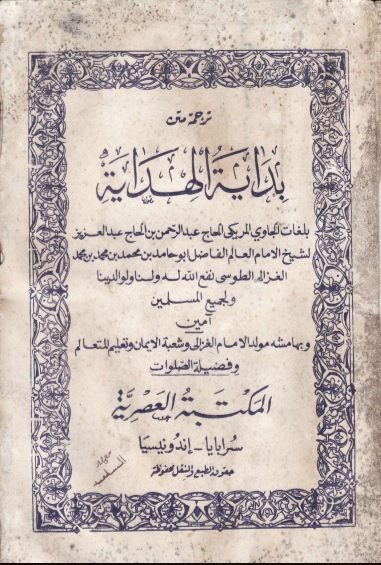 ترجمة متن
بداية الهداية
بلغات الجاوي المريكي الحاج عبد الرحمن بن الحاج عبد العزيز
لشيخ الامام العالم الفاضل ابو حامد بن محمد بن محمد بن محمد
الغزالي الطوسى نفع الله له ولنا ولوالدينا
ولجميع المسلمين
آمين
وبهامشه مولد الامام الغزالى وشعبة الايمان وتعليم المتعالم
وفضيلة الصلوات
المكتبة العصرية
سرابايا - إندونيسيا
حقوق الطبع والنقل محفوظة